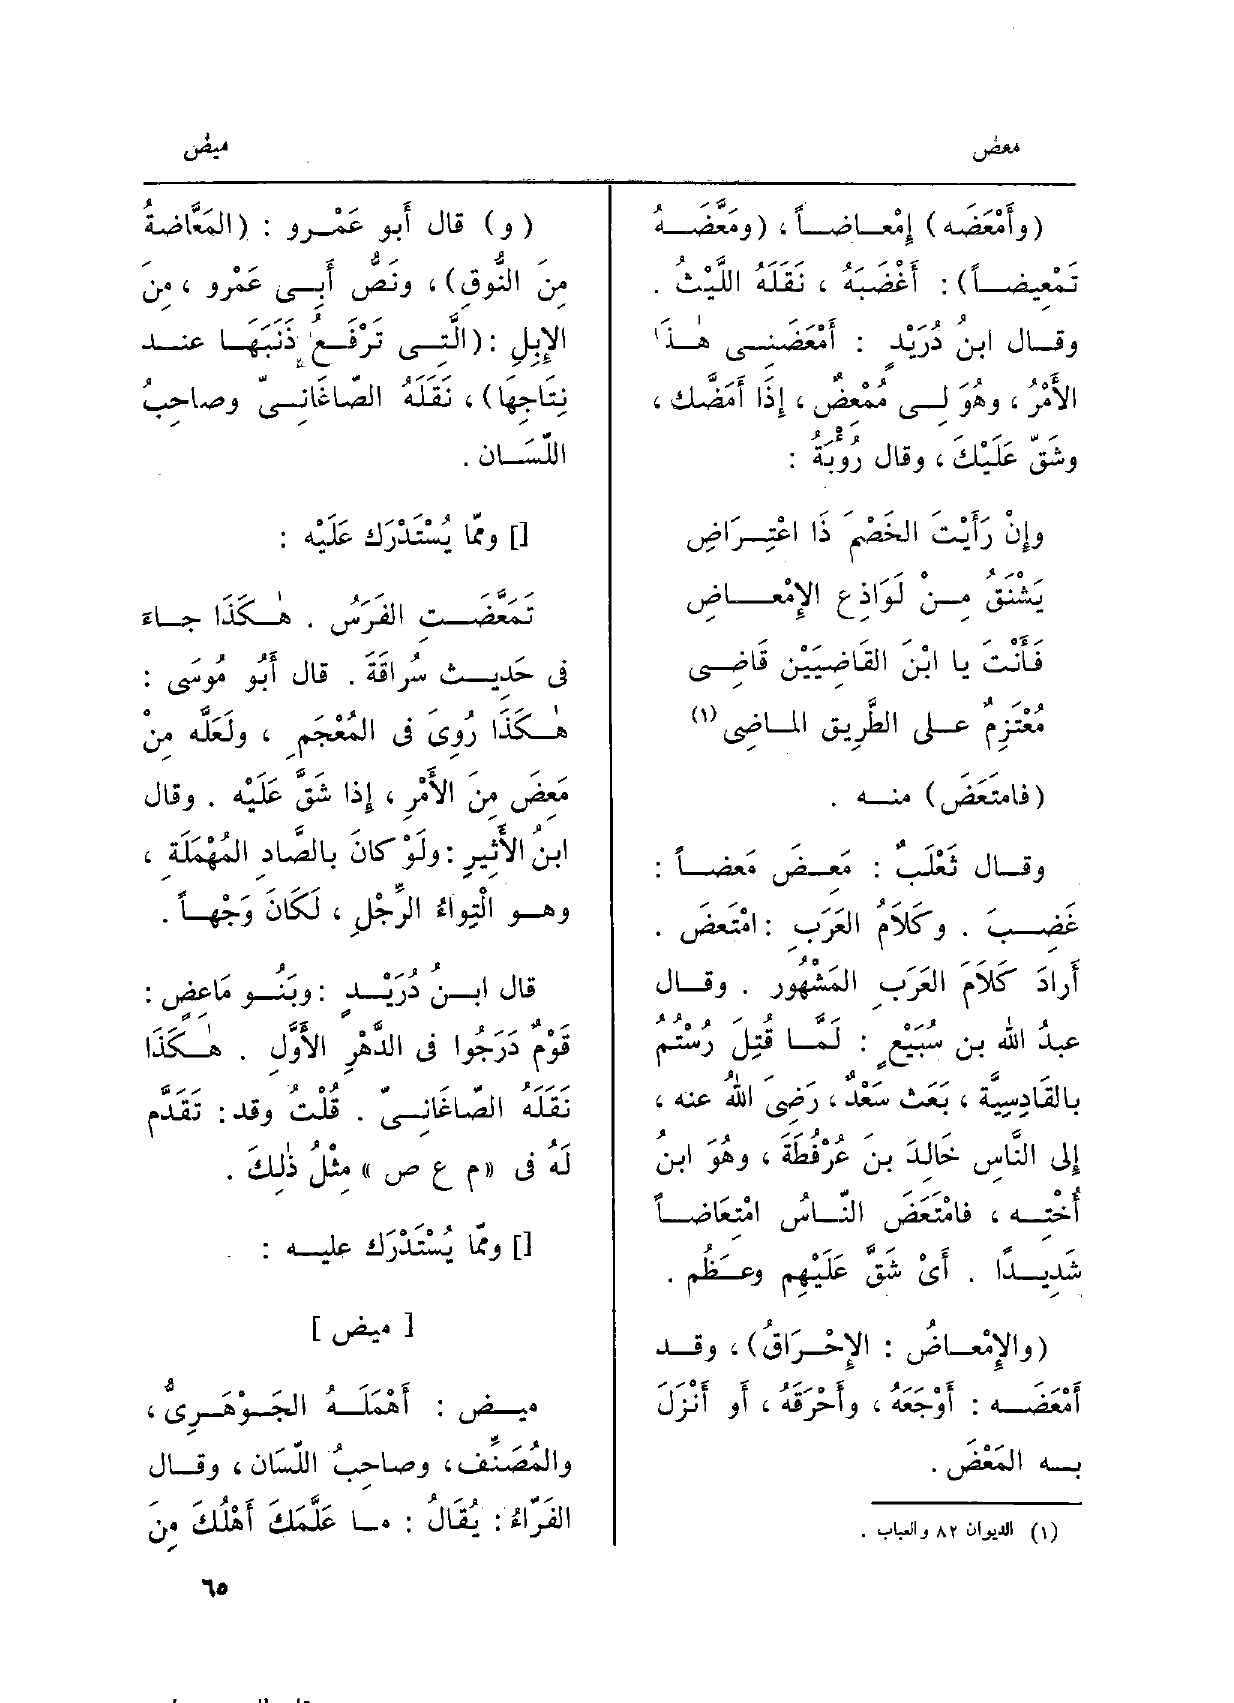 معض
ميض
(وأَمْعَضَه) إِمْعَاضاً، (ومَعَّضَهُ
تَمْعِيضاً): أَغْضَبَهُ، نَقَلَهُ اللَّيْثُ.
وقال ابنُ دُرَيْدٍ: أَمْعَضَنِى هٰذَا
الأَمْرُ، وهُوَ لِى مُمْعِضٌ، إِذَا أَمَضَّكَ،
وشَقَّ عَلَيْكَ، وقال رُؤْبَةُ:
وإِنْ رَأَيْتَ الخَصْمَ ذَا اعْتِرَاضِ
يَشْنَقُ مِنْ لَوَاذِعِ الإِمْعَاضِ
فَأَنْتَ يا ابْنَ القَاضِيَيْنِ قَاضِى
مُعْتَزِمٌ على الطَّرِيقِ الماضِى (١)
(فامتَعَضَ) منه.
وقال ثَعْلَبٌ: مَعِضَ مَعَضاً:
غَضِبَ. وكَلَامُ العَرَبِ: امْتَعَضَ.
أَرادَ كَلَامَ العَرَبِ المَشْهُورَ. وقال
عبدُ الله بن سُبَيْعٍ: لَمَّا قُتِلَ رُسْتُمُ
بالقَادِسِيَّةِ، بَعَثَ سَعْدٌ، رَضِىَ اللهُ عنه،
إلى النَّاسِ خَالِدَ بنَ عُرْفُطَةَ، وهُوَ ابنُ
أُخْتِه، فامْتَعَضَ النَّاسُ امْتِعَاضاً
شَدِيدًا. أَىْ شَقَّ عَلَيْهِم وعَظُمَ.
(والإِمْعَاضُ: الإِحْرَاقُ)، وقد
أَمْعَضَه: أَوْجَعَهُ، وأَحْرَقَهُ، أَو أَنْزَلَ
به المَعْضَ.
(١) الديوان ٨٢ والعباب.
(و) قال أَبو عَمْرو: (المَعَّاضَةُ
مِنَ النُّوقِ)، ونَصُّ أَبِى عَمْرو، مِنَ
الإِبِلِ: (الَّتِى تَرْفَعُ ذَنَبَهَا عند
نِتَاجِهَا)، نَقَلَهُ الصّاغَانِىّ وصاحِبُ
اللّسَان.
[] وممّا يُسْتَدْرَك عَلَيْه:
تَمَعَّضَتِ الفَرَسُ. هٰكَذَا جاءَ
فى حَدِيثِ سُراقَةَ. قال أَبُو مُوسَى:
هٰكَذَا رُوِىَ فى المُعْجَمِ، ولَعَلَّه مِنْ
مَعِضَ مِنَ الأَمْرِ، إِذا شَقَّ عَلَيْه. وقال
ابنُ الأَثِيرِ: ولَوْ كانَ بالصَّادِ المُهْمَلَةِ،
وهو الْتِوَاءُ الرِّجْلِ، لَكَانَ وَجْهاً.
قال ابنُ دُرَيْدٍ: وبَنُو مَاعِضٍ:
قَوْمٌ دَرَجُوا فى الدَّهْرِ الأَوَّلِ. هٰكَذَا
نَقَلَهُ الصّاغَانِىّ. قُلْتُ وقد: تَقَدَّم
لَهُ فى «م ع ص» مِثْلُ ذٰلِكَ.
[] وممّا يُسْتَدْرَك عليه:
[ ميض ]
ميض: أَهْمَلَهُ الجَوْهَرِىُّ،
والمُصَنِّف، وصاحِبُ اللّسَان، وقال
الفَرّاءُ: يُقَالُ: ما عَلَّمَكَ أَهْلُكَ مِنَ
٦٥